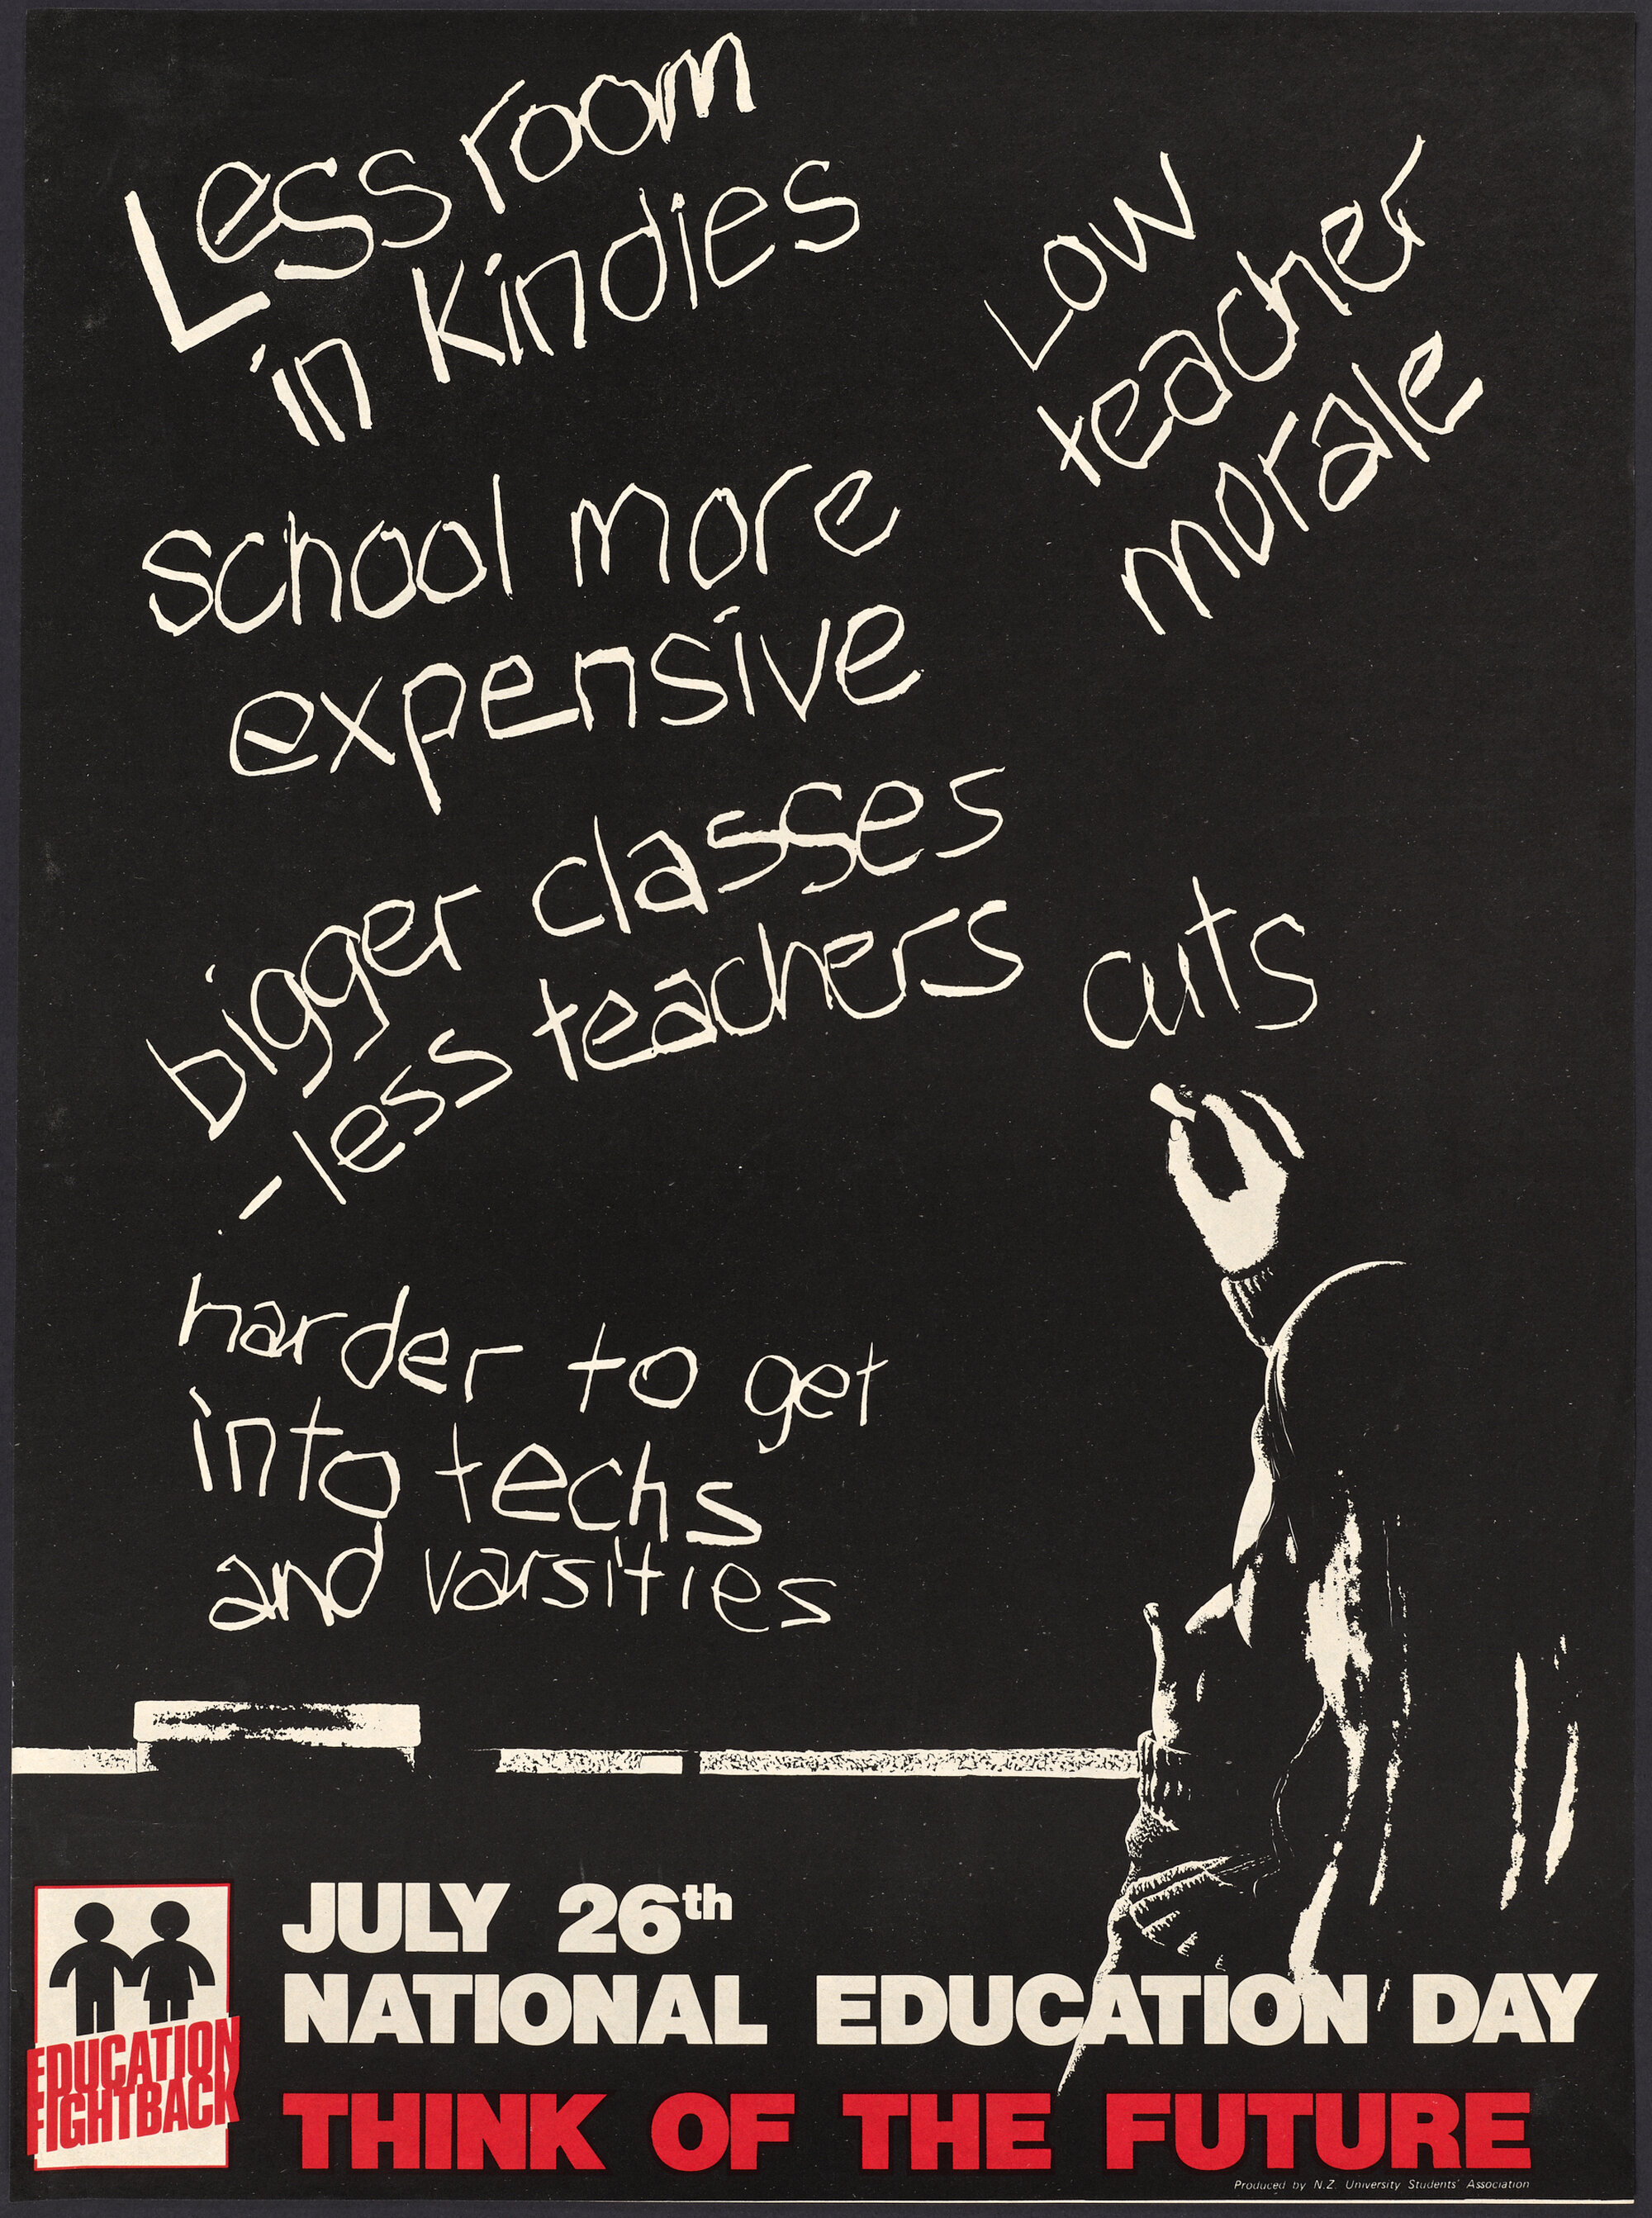 Less room
in Kindies
Low
teacher
morale
School more
expensive
bigger classes
- less teachers
cuts
harder to get
into techs
and varsities
JULY 26th
NATIONAL EDUCATION DAY
THINK OF THE FUTURE
EDUCATION
FIGHTBACK
Produced by N.Z. University Students' Association